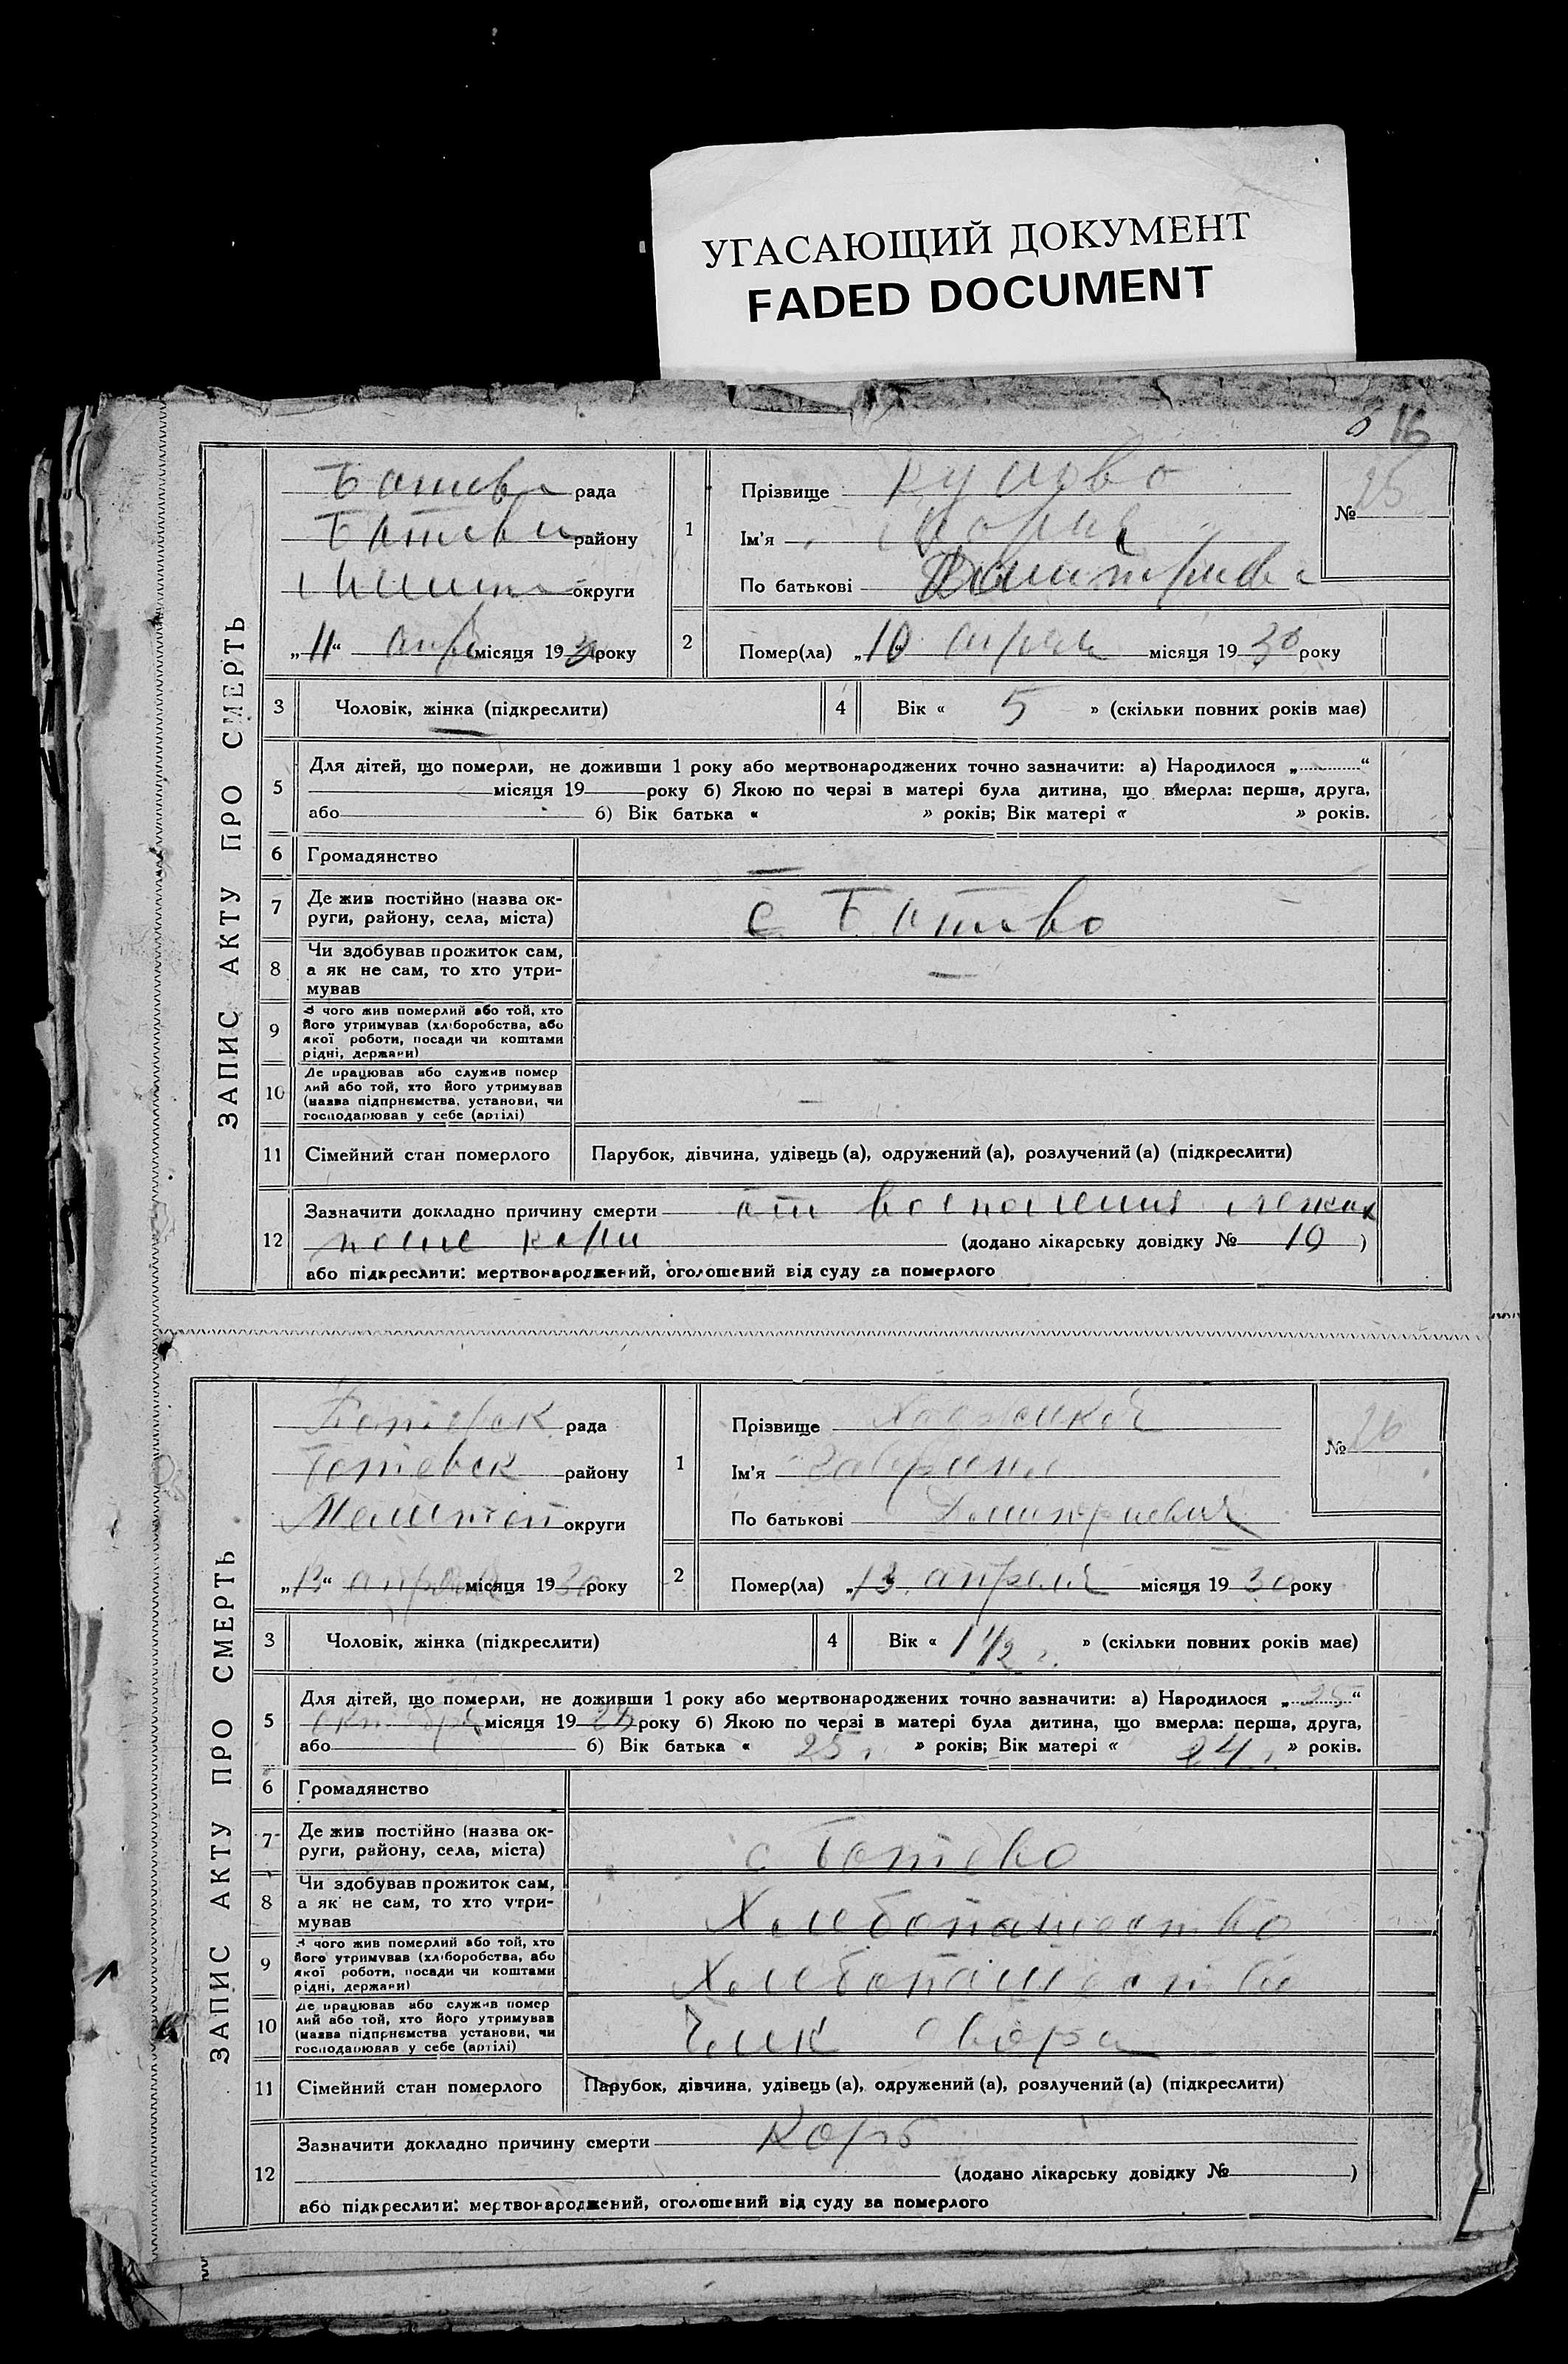 УГАСАЮЩИЙ ДОКУМЕНТ
FADED DOCUMENT
16
ЗАПИС АКТУ ПРО СМЕРТЬ
рада
району
округи
„11“ місяця 1930 року
1
Прізвище
Ім'я
По батькові
№ 25
2
Помер(ла) „10 апреля місяця 1930 року
3 Чоловік, жінка (підкреслити)
4 Вік « 5 » (скільки повних років має)
5
Для дітей, що померли, не доживши 1 року або мертвонароджених точно зазначити: а) Народилося „ “
місяця 19 року б) Якою по черзі в матері була дитина, що вмерла: перша, друга,
або б) Вік батька « » років; Вік матері « » років.
6 Громадянство —
7
Де жив постійно (назва ок-
руги, району, села, міста)
с Ботево
8
Чи здобував прожиток сам,
а як не сам, то хто утри-
мував
—
9
З чого жив померлий або той, хто
його утримував (хліборобства, або
якої роботи, посади чи коштами
рідні, держави)
10
Де працював або служив помер
лий або той, хто його утримував
(назва підприємства, установи, чи
господарював у себе (артілі)
—
11 Сімейний стан померлого Парубок, дівчина, удівець (а), одружений (а), розлучений (а) (підкреслити)
12
Зазначити докладно причину смерти от воспаления легких
после кори (додано лікарську довідку № 10 )
або підкреслити: мертвонароджений, оголошений від суду за померлого
ЗАПИС АКТУ ПРО СМЕРТЬ
Ботевск рада
Ботевск району
округи
„13“ апреля місяця 1930 року
1
Прізвище
Ім'я
По батькові
№ 26
2
Помер(ла) „13 апреля місяця 1930 року
3 Чоловік, жінка (підкреслити)
4 Вік « 1 1/2 г. » (скільки повних років має)
5
Для дітей, що померли, не доживши 1 року або мертвонароджених точно зазначити: а) Народилося „25“
октября місяця 1928 року б) Якою по черзі в матері була дитина, що вмерла: перша, друга,
або б) Вік батька « 25 » років; Вік матері « 24 » років.
6 Громадянство
7
Де жив постійно (назва ок-
руги, району, села, міста)
с Ботево
8
Чи здобував прожиток сам,
а як не сам, то хто утри-
мував
Хлебопашество
9
З чого жив померлий або той, хто
його утримував (хліборобства, або
якої роботи, посади чи коштами
рідні, держави)
10
Де працював або служив помер
лий або той, хто його утримував
(назва підприємства установи, чи
господарював у себе (артілі)
11 Сімейний стан померлого Парубок, дівчина, удівець (а), одружений (а), розлучений (а) (підкреслити)
12
Зазначити докладно причину смерти Корь
(додано лікарську довідку № )
або підкреслити: мертвонароджений, оголошений від суду за померлого